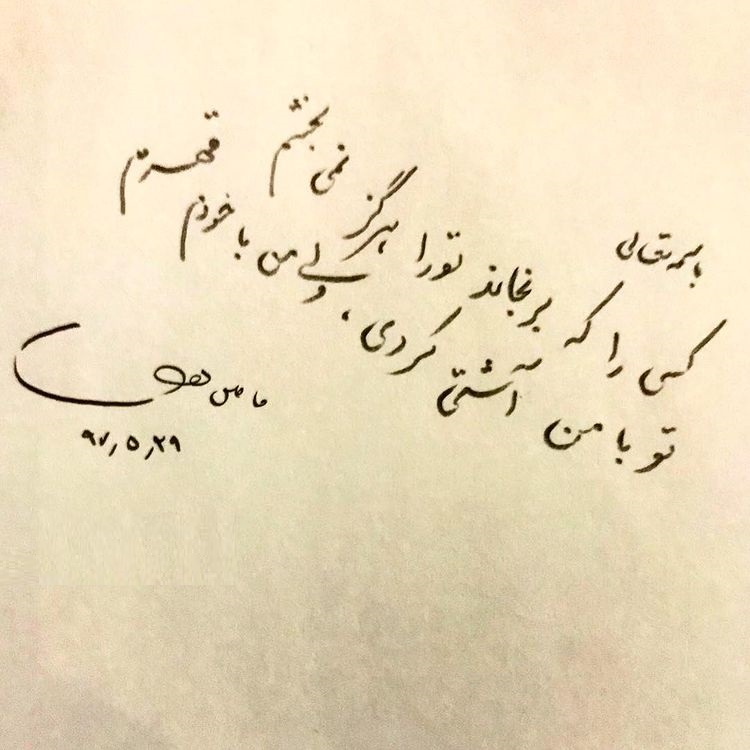 باسمه تعالی
کسی را که برنجاند تو را هرگز نمی بخشم
تو با من آشتی کردی، ولی من با خودم قهرم
۹۷٫۵٫۲۹